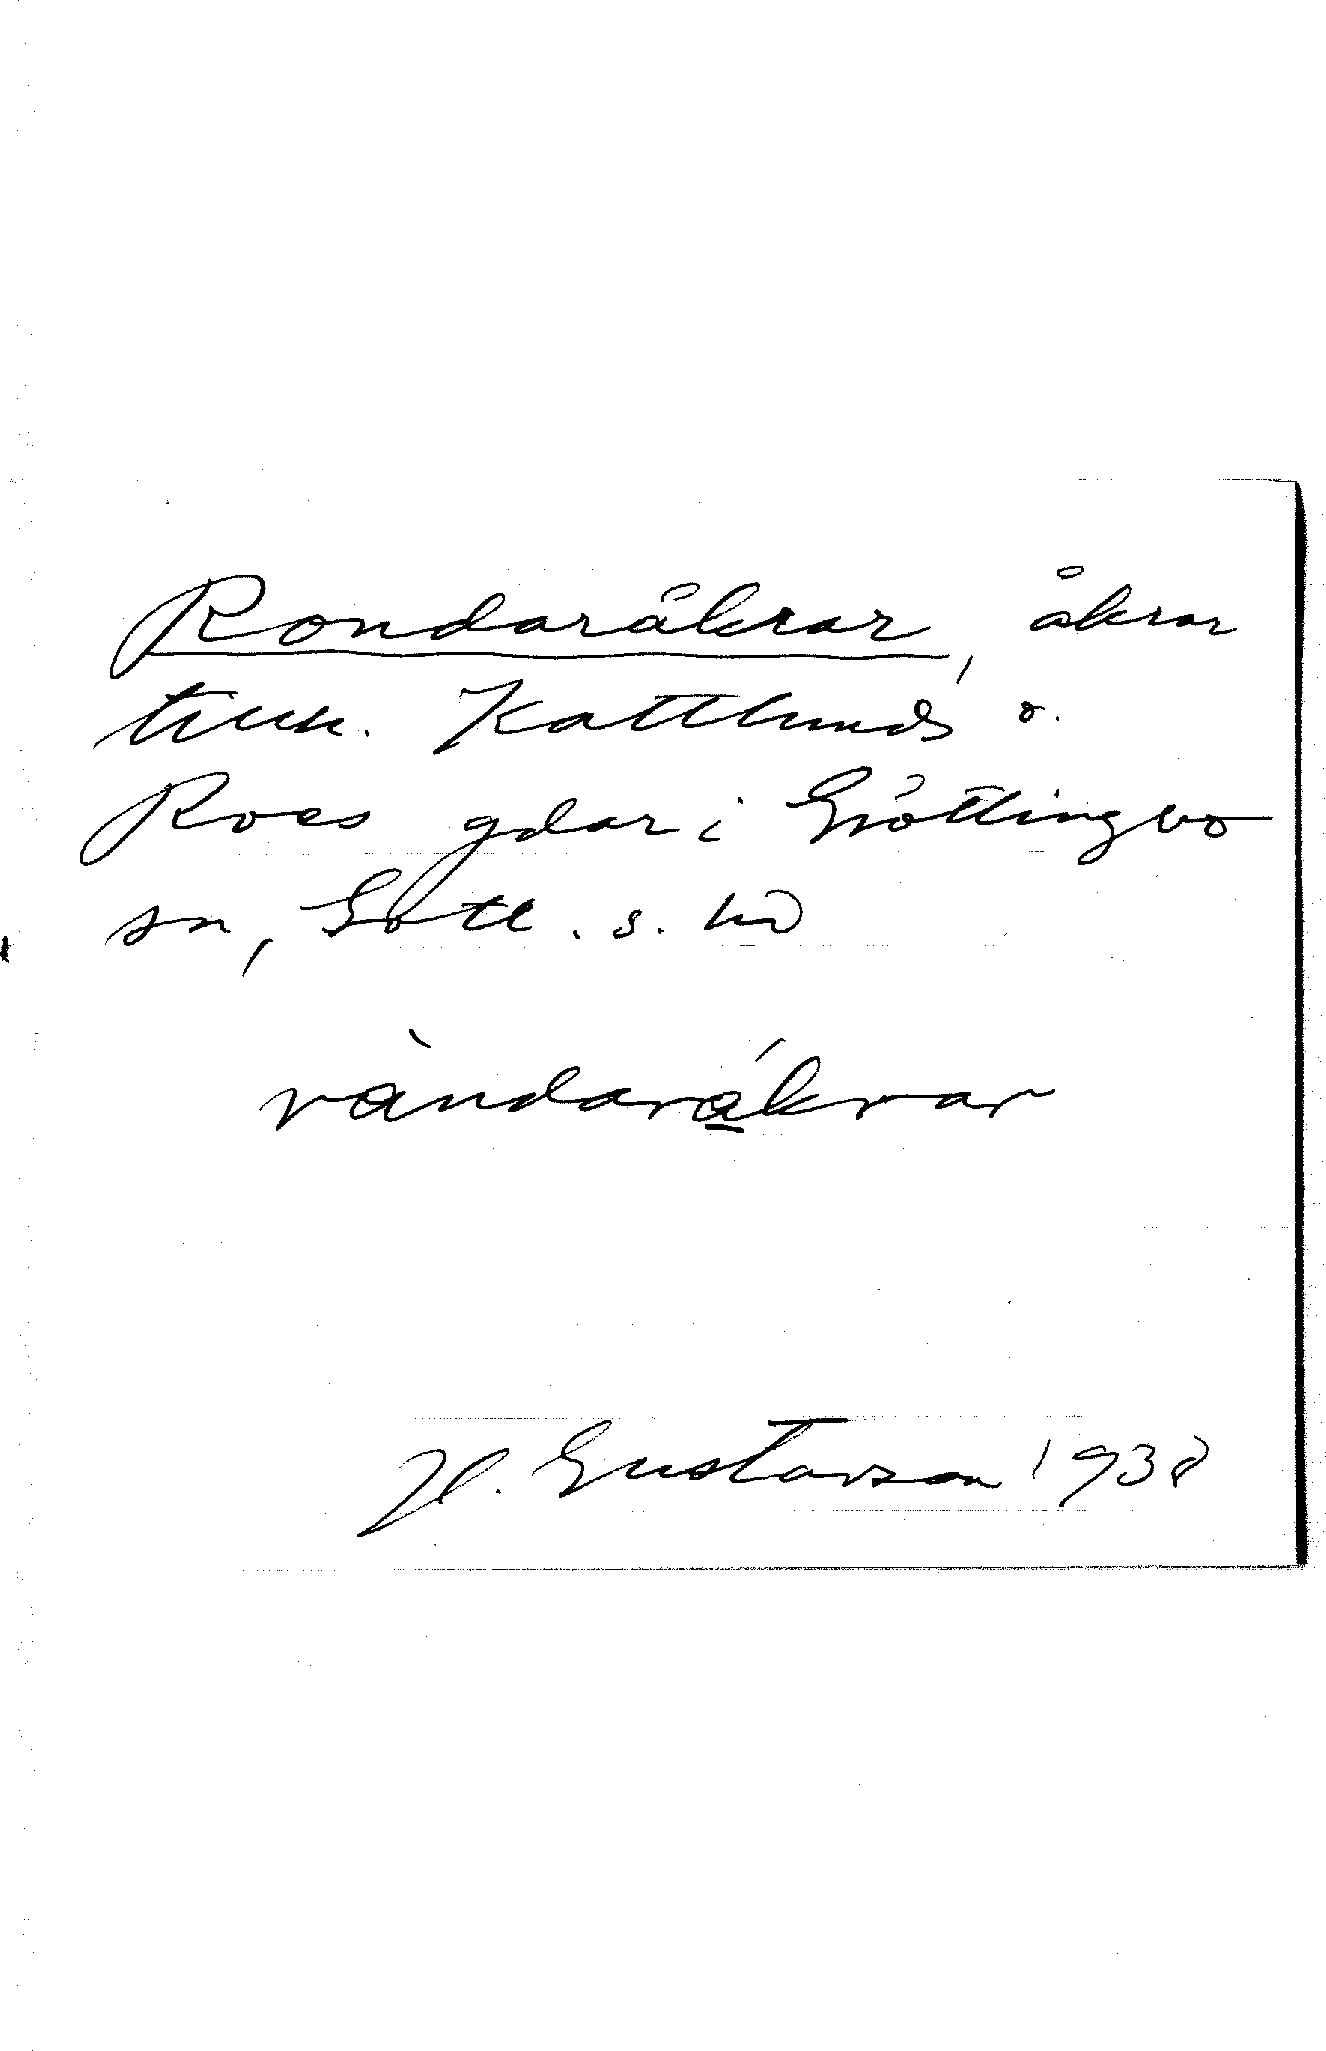 Rondaråkrar, åkrar
tillh. Kattlunds o.
Roes gdar i Grötlingbo
sn, Gotl. s. hd
ràndarákrar
H. Gustavson 1938